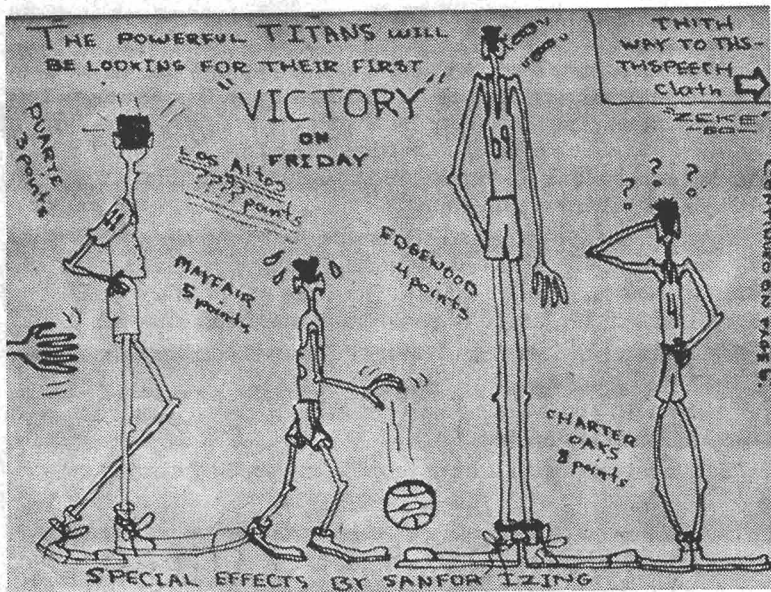 THE POWERFUL TITANS WILL
BE LOOKING FOR THEIR FIRST
"VICTORY"
ON
FRIDAY
THITH
WAY TO THS-
THSPEECH
Clath
"ZEKE"
DUARTE
3 points
Los Altos
???? points
MAYFAIR
5 points
EDGEWOOD
4 points
69
CHARTER
OAKS
8 points
CONTINUED ON PAGE 6.
SPECIAL EFFECTS BY SANFOR IZING